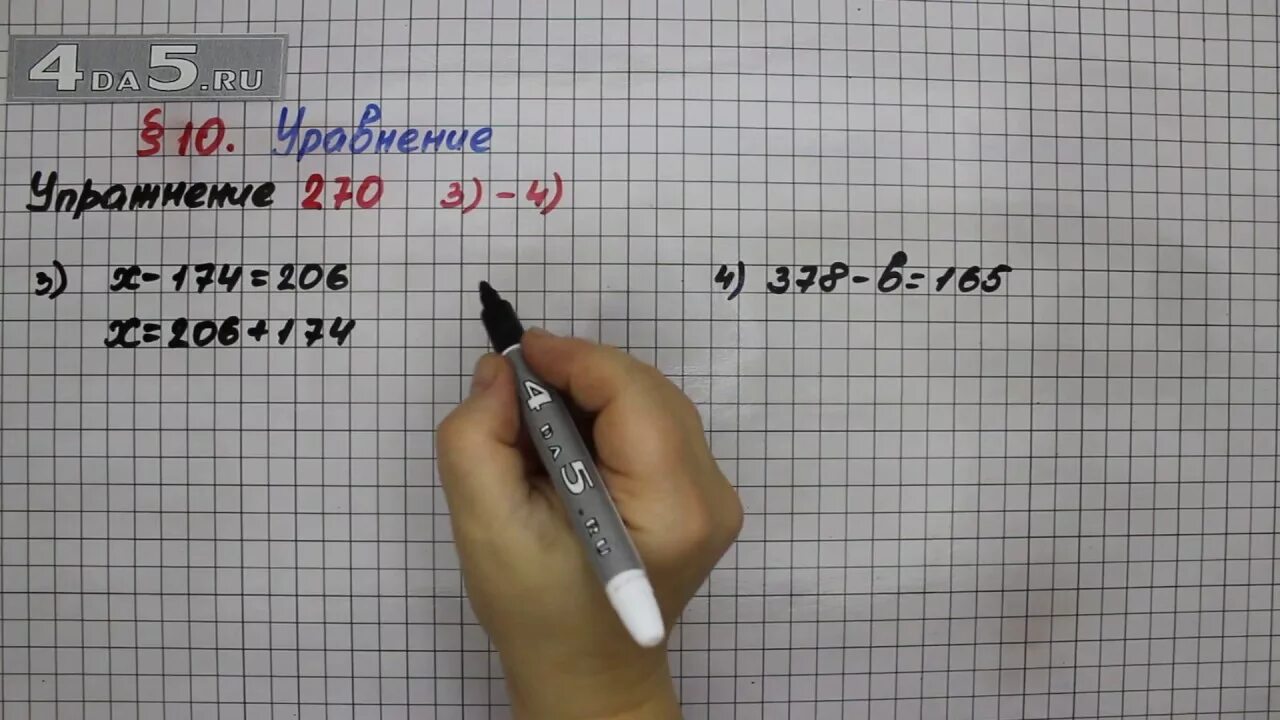 4DA5.RU
§ 10. Уравнение
Упражнение 270 3) - 4)
3) x - 174 = 206
x = 206 + 174
4) 378 - b = 165
4 DA 5.RU